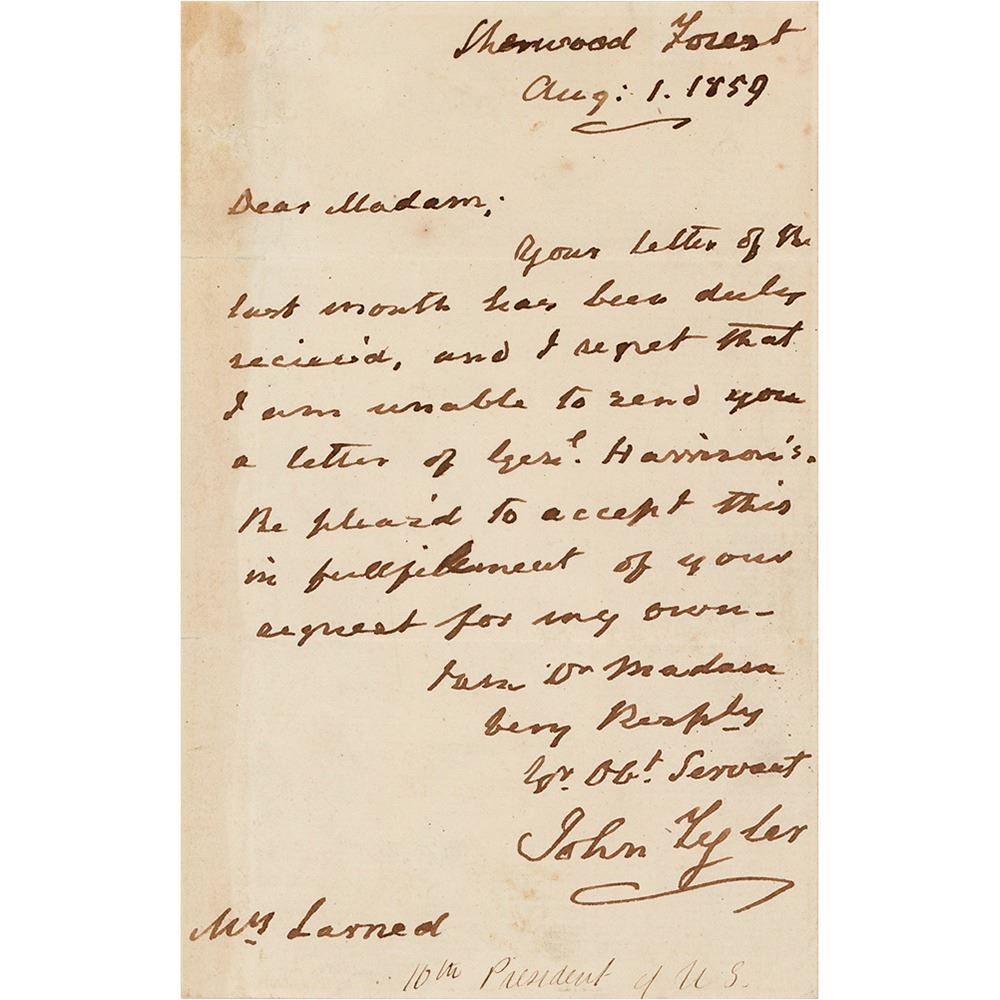 Sherwood Forest
Aug: 1. 1859
Dear Madam;
Your letter of the
last month has been duly
reciev'd, and I regret that
I am unable to send you
a letter of Genl. Harrison's.
Be pleas'd to accept this
in fullfilement of your
request for my own–
I am Dr Madam
Very Resply
Yr Obt Servant
John Tyler
Mrs Larned
10th President of U S.